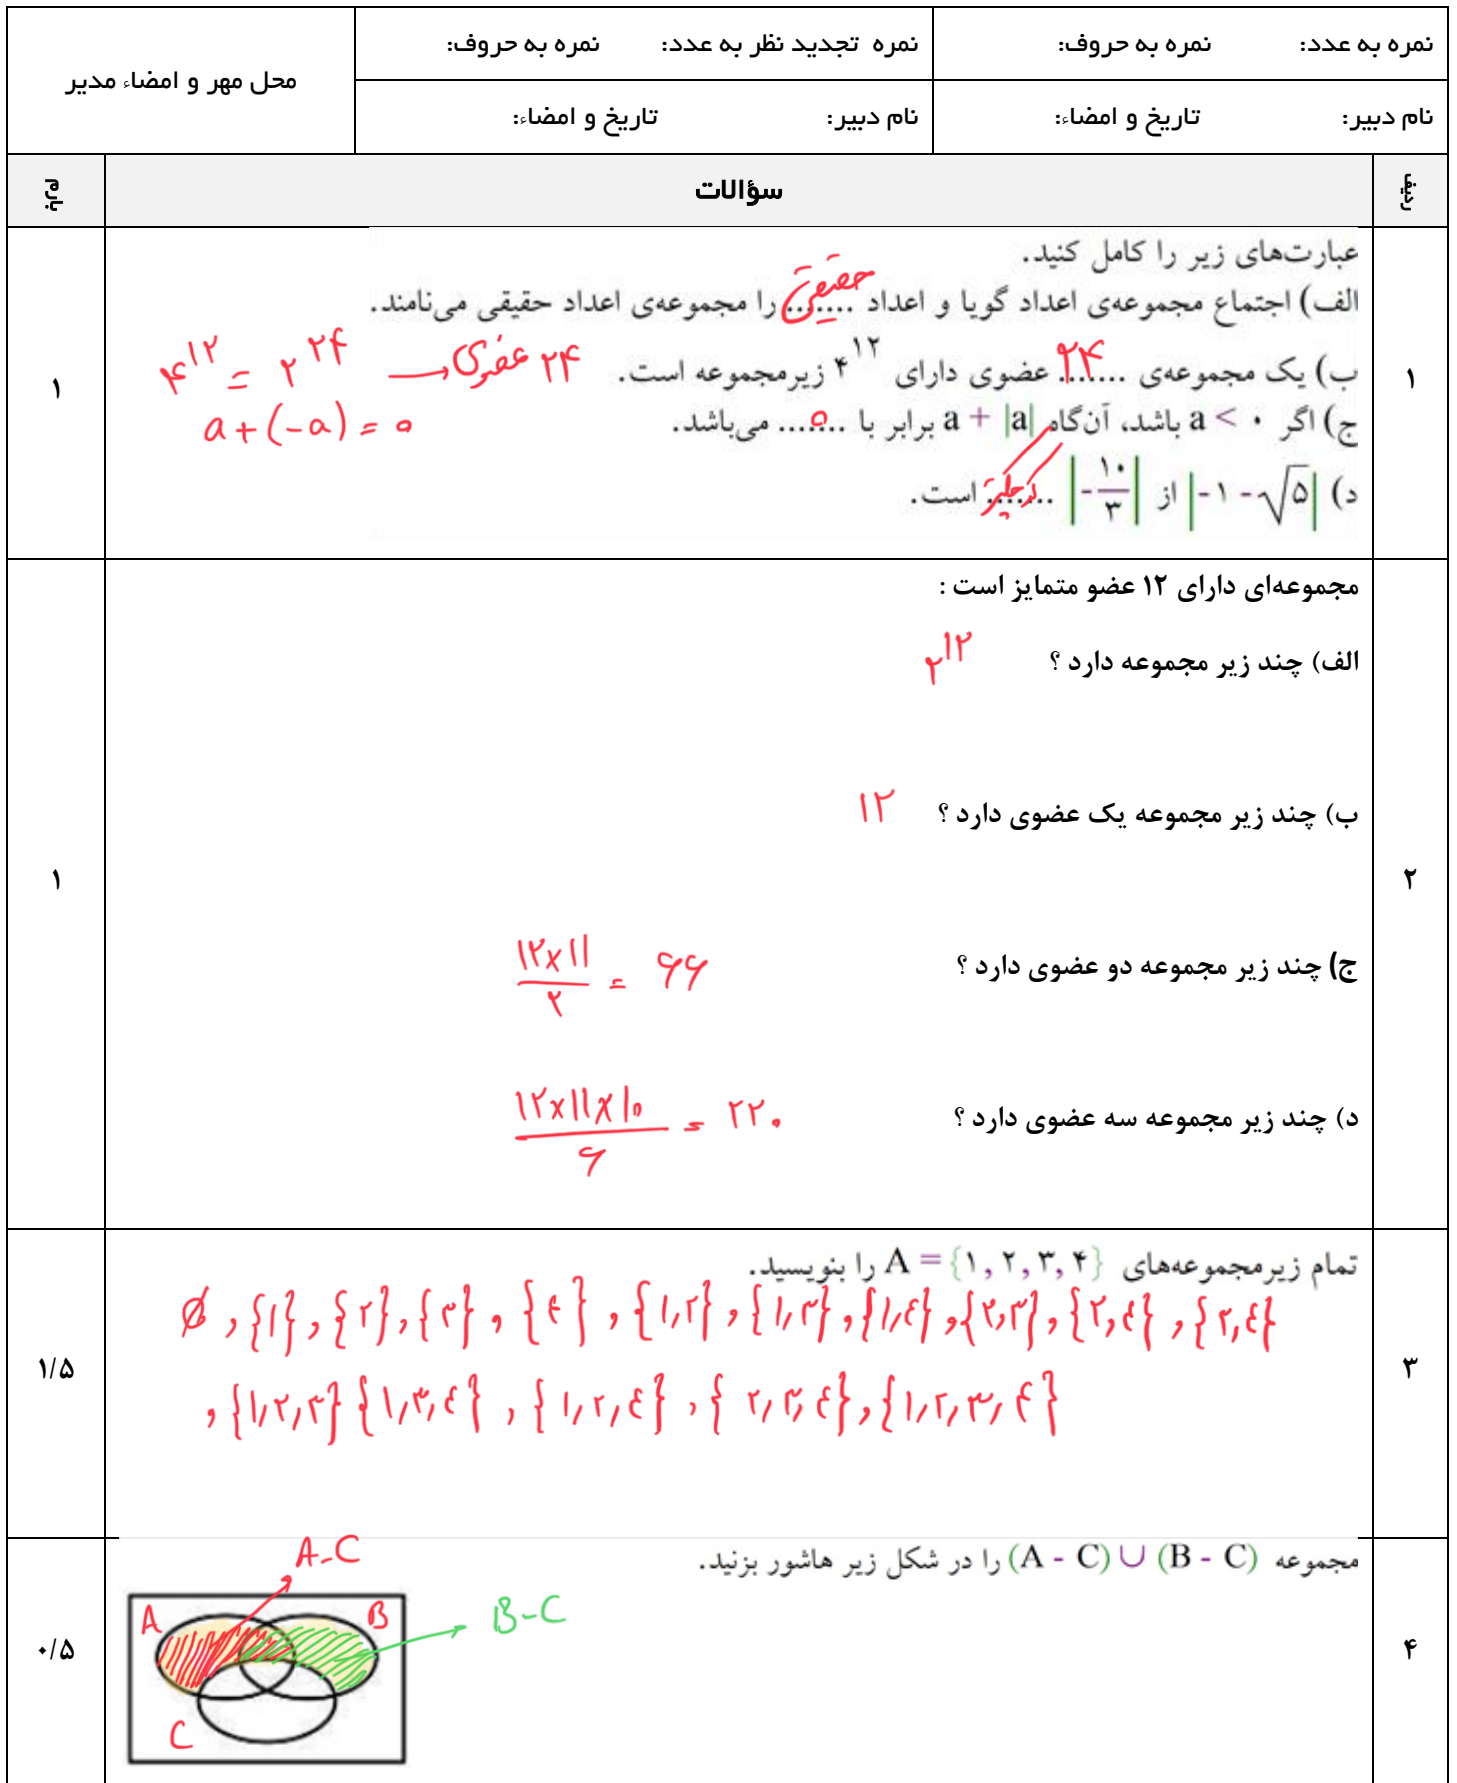 نمره به عدد: نمره به حروف: نمره تجدید نظر به عدد: نمره به حروف: محل مهر و امضاء مدیر
نام دبیر: تاریخ و امضاء: نام دبیر: تاریخ و امضاء:
ردیف سؤالات بارم
۱
عبارت‌های زیر را کامل کنید.
الف) اجتماع مجموعه‌ی اعداد گویا و اعداد ....... را مجموعه‌ی اعداد حقیقی می‌نامند.
حقیقی
ب) یک مجموعه‌ی ....... عضوی دارای ۴^۱۲ زیرمجموعه است.
۲۴
۴^۱۲ = ۲^۲۴ → ۲۴ عضوی
ج) اگر a < ۰ باشد، آن‌گاه a + |a| برابر با ....... می‌باشد.
۰
a + (-a) = ۰
د) |-۱ - √۵| از |-۱۰/۳| ....... است.
۱
۲
مجموعه‌ای دارای ۱۲ عضو متمایز است :
الف) چند زیر مجموعه دارد ؟ ۲^۱۲
ب) چند زیر مجموعه یک عضوی دارد ؟ ۱۲
ج) چند زیر مجموعه دو عضوی دارد ؟ ۱۲×۱۱/۲ = ۶۶
د) چند زیر مجموعه سه عضوی دارد ؟ ۱۲×۱۱×۱۰/۶ = ۲۲۰
۱
۳
تمام زیرمجموعه‌های A = {۱, ۲, ۳, ۴} را بنویسید.
∅ , {۱} , {۲} , {۳} , {۴} , {۱,۲} , {۱,۳} , {۱,۴} , {۲,۳} , {۲,۴} , {۳,۴}
, {۱,۲,۳} {۱,۳,۴} , {۱,۲,۴} , {۲,۳,۴} , {۱,۲,۳,۴}
۱/۵
۴
مجموعه (A - C) ∪ (B - C) را در شکل زیر هاشور بزنید.
A-C
A B B-C
C
۰/۵